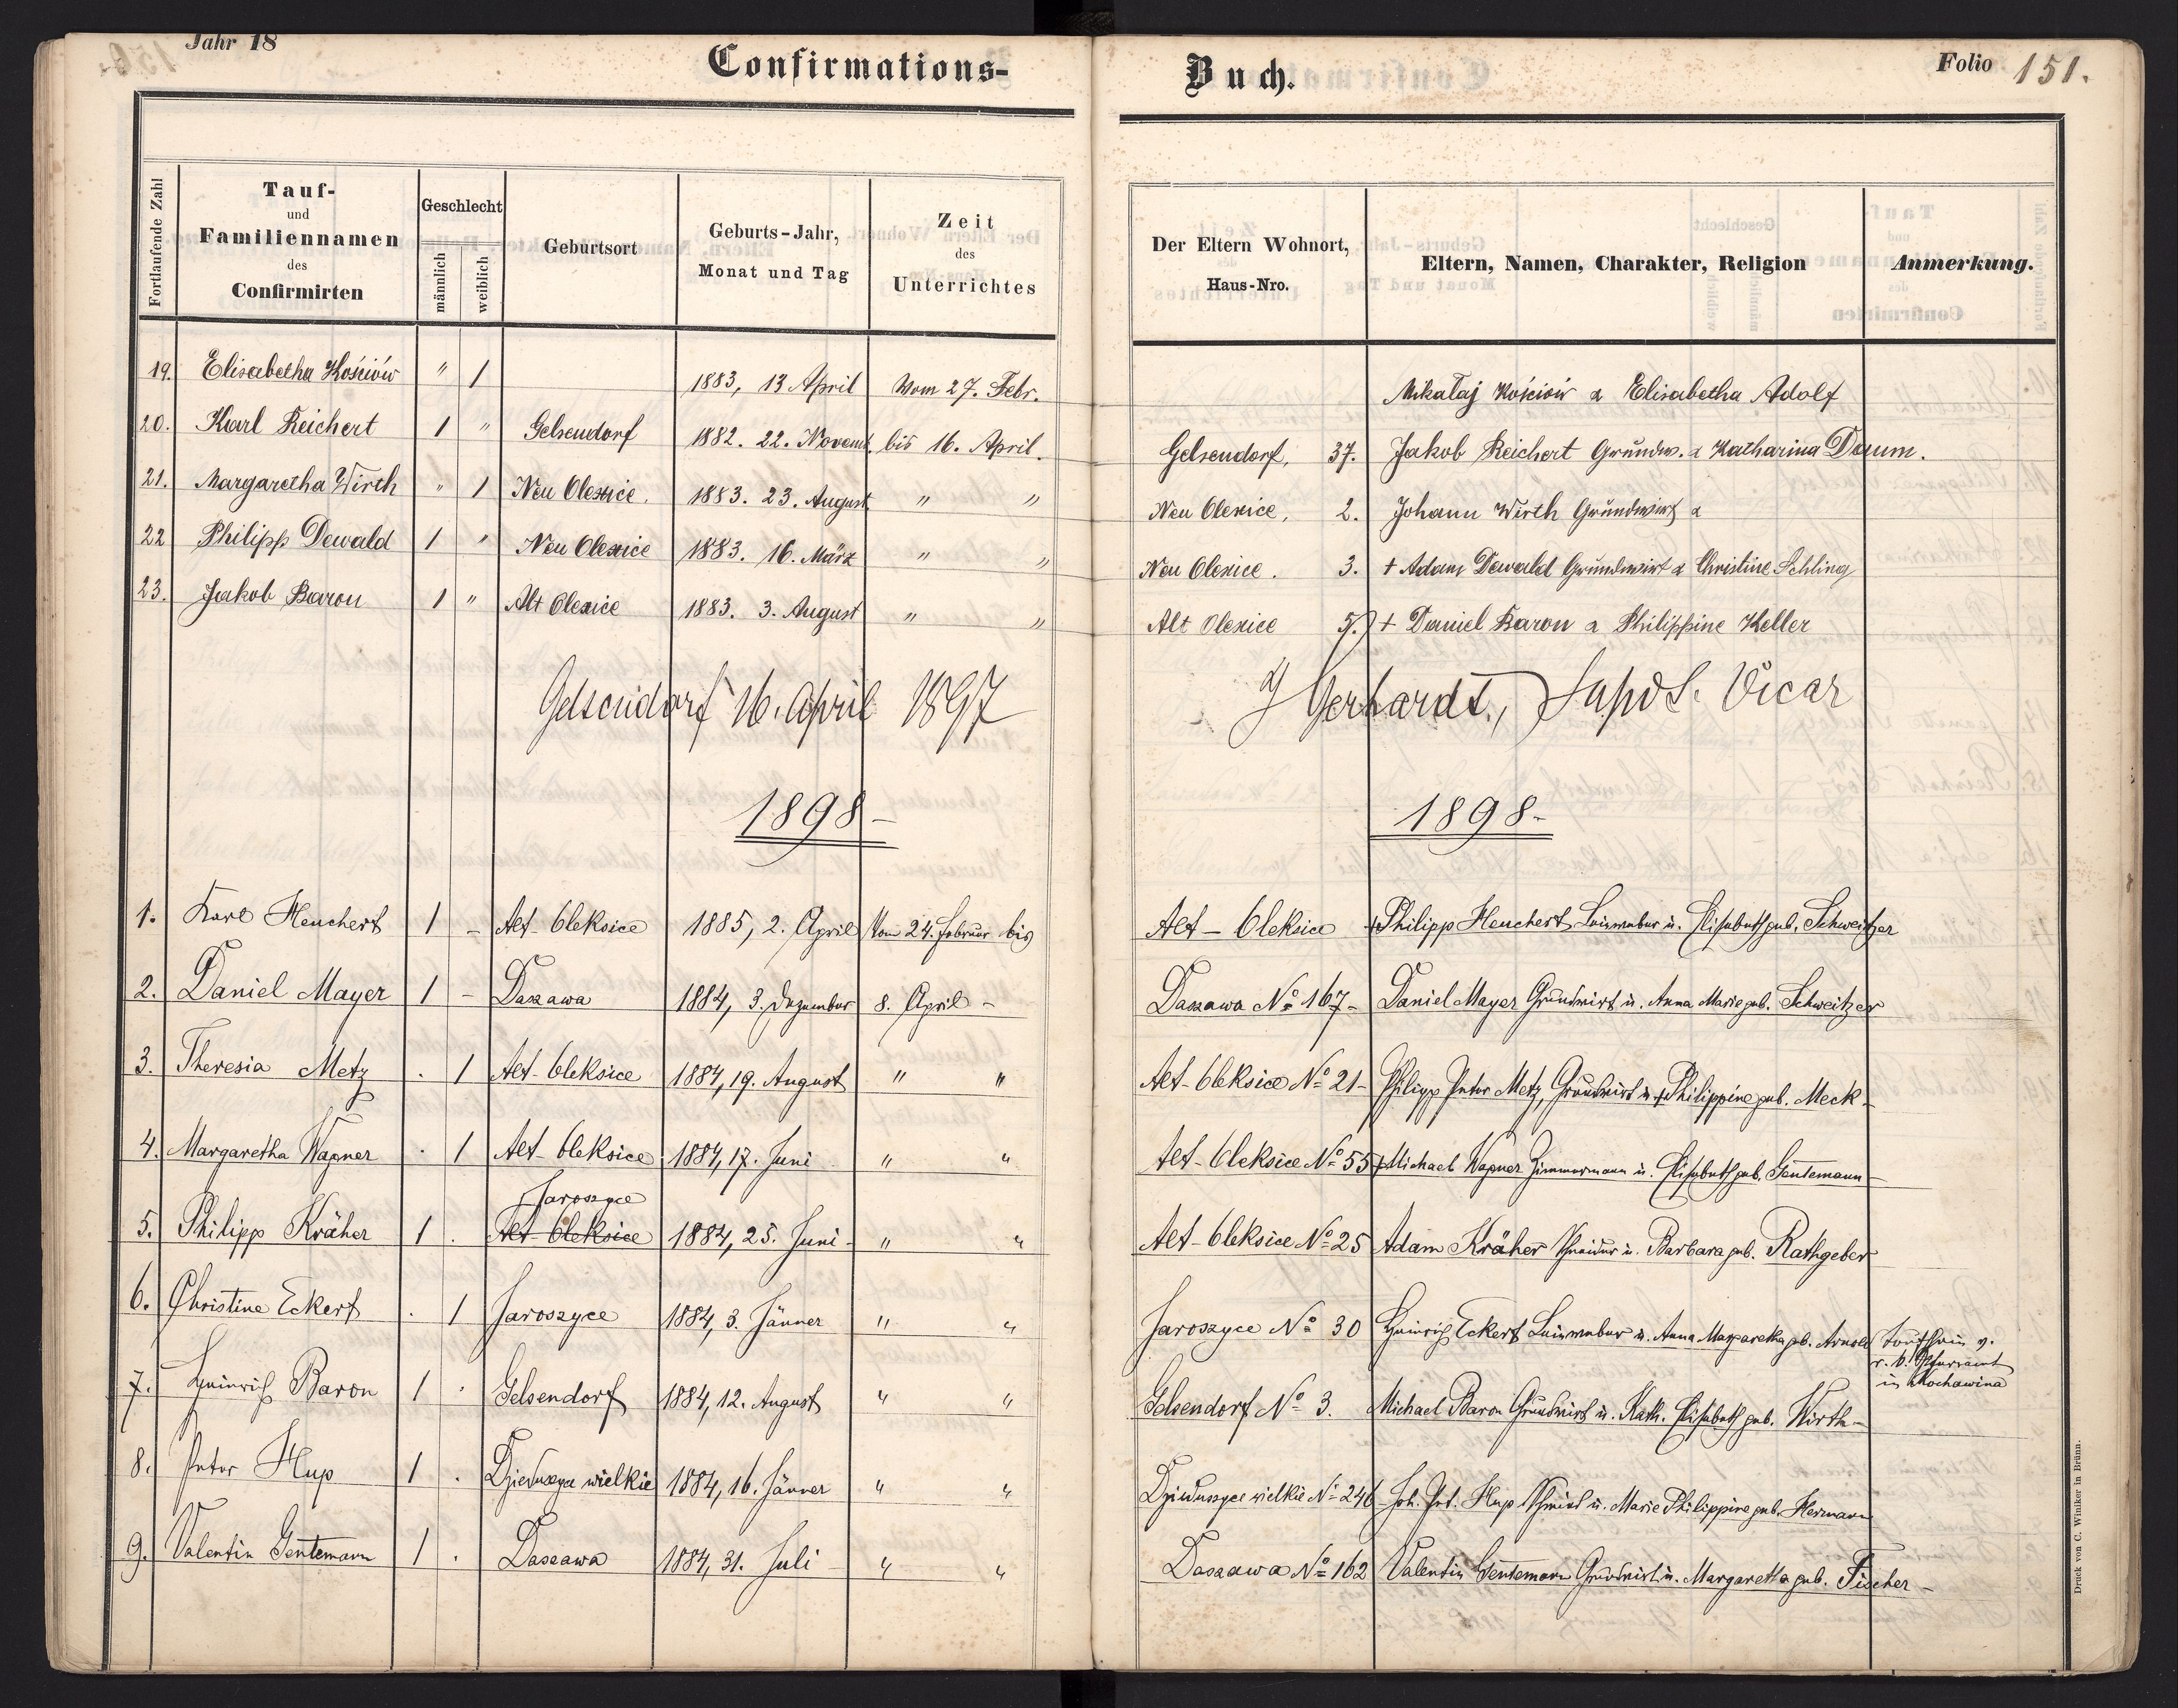 Jahr 18
Confirmations-
Buch.
Folio 151.
Fortlaufende Zahl
Tauf-
und
Familiennamen
des
Confirmirten
Geschlecht
männlich
weiblich
Geburtsort
Geburts-Jahr,
Monat und Tag
Zeit
des
Unterrichtes
Der Eltern Wohnort,
Haus-Nro.
Eltern, Namen, Charakter, Religion
Anmerkung.
19. Elisabetha Kościów " 1 1883, 13 April Vom 27. Febr. Mikałaj Kościów & Elisabetha Adolf
20. Karl Reichert 1 " Gelsendorf 1882. 22. Novemb. bis 16. April. Gelsendorf, 37. Jakob Reichert Grundw. & Katharina Daum.
21. Margaretha Wirth " 1 Neu Olexice. 1883. 23. August " " Neu Olexice, 2. Johann Wirth Grundwirt &
22 Philipp Dewald 1 " Neu Olexice 1883. 16. März " " Neu Olexice. 3. † Adam Dewald Grundwirt & Christine Schling
23. Jakob Baron 1 " Alt Olexice 1883. 3. August " " Alt Olexice 5. † Daniel Baron & Philippine Keller
Gelsendorf 16. April 1897
Gerhardt, Vicar
1898-
1898-
1. Karl Heuchert 1 - Alt-Oleksice 1885, 2. April Vom 24. Februar bis Alt-Oleksice †Philipp Heuchert, Leinweber u. Elisabeth geb. Schweitzer
2. Daniel Mayer 1 - Daszawa 1884, 3. Dezember 8. April - Daszawa No 167- Daniel Mayer Grundwirt u. Anna Marie geb. Schweitzer
3. Theresia Metz . 1 Alt-Oleksice 1884, 19. August " " Alt-Oleksice No 21- Philipp Peter Metz, Grundwirt u. †Philippine geb. Meck-
4. Margaretha Wagner . 1 Alt-Oleksice 1884, 17. Juni " " Alt-Oleksice No 55 †Michael Wagner Zimmermann u. Elisabeth geb. Gentemann-
Jaroszyce
5. Philipp Kräher 1 . Alt-Oleksice 1884, 25. Juni- " " Alt-Oleksice No 25 Adam Kräher Schneider u. Barbara geb. Rathgeber
6. Christine Eckert . 1 Jaroszyce 1884, 3. Jänner " " Jaroszyce No 30 Heinrich Eckert Leinweber u. Anna Margaretha geb. Arnold Taufschein v.
r. k. Pfarramt
in Kochawina
7. Heinrich Baron 1 . Gelsendorf 1884, 12. August " " Gelsendorf No 3. Michael Baron Grundwirt u. Kath. Elisabeth geb. Wirth-
8. Peter Hup 1 . Dzieduszyce wielkie 1884, 16. Jänner " " Dzieduszyce wielkie No 246 Joh. Pet. Hup Schmied u. Marie Philippine geb. Hermann
9. Valentin Gentemann 1 . Daszawa 1884, 31. Juli - " " Daszawa No 162 Valentin Gentemann Grundwirt u. Margaretha geb. Fischer-
Druck von C. Winiker in Brünn.